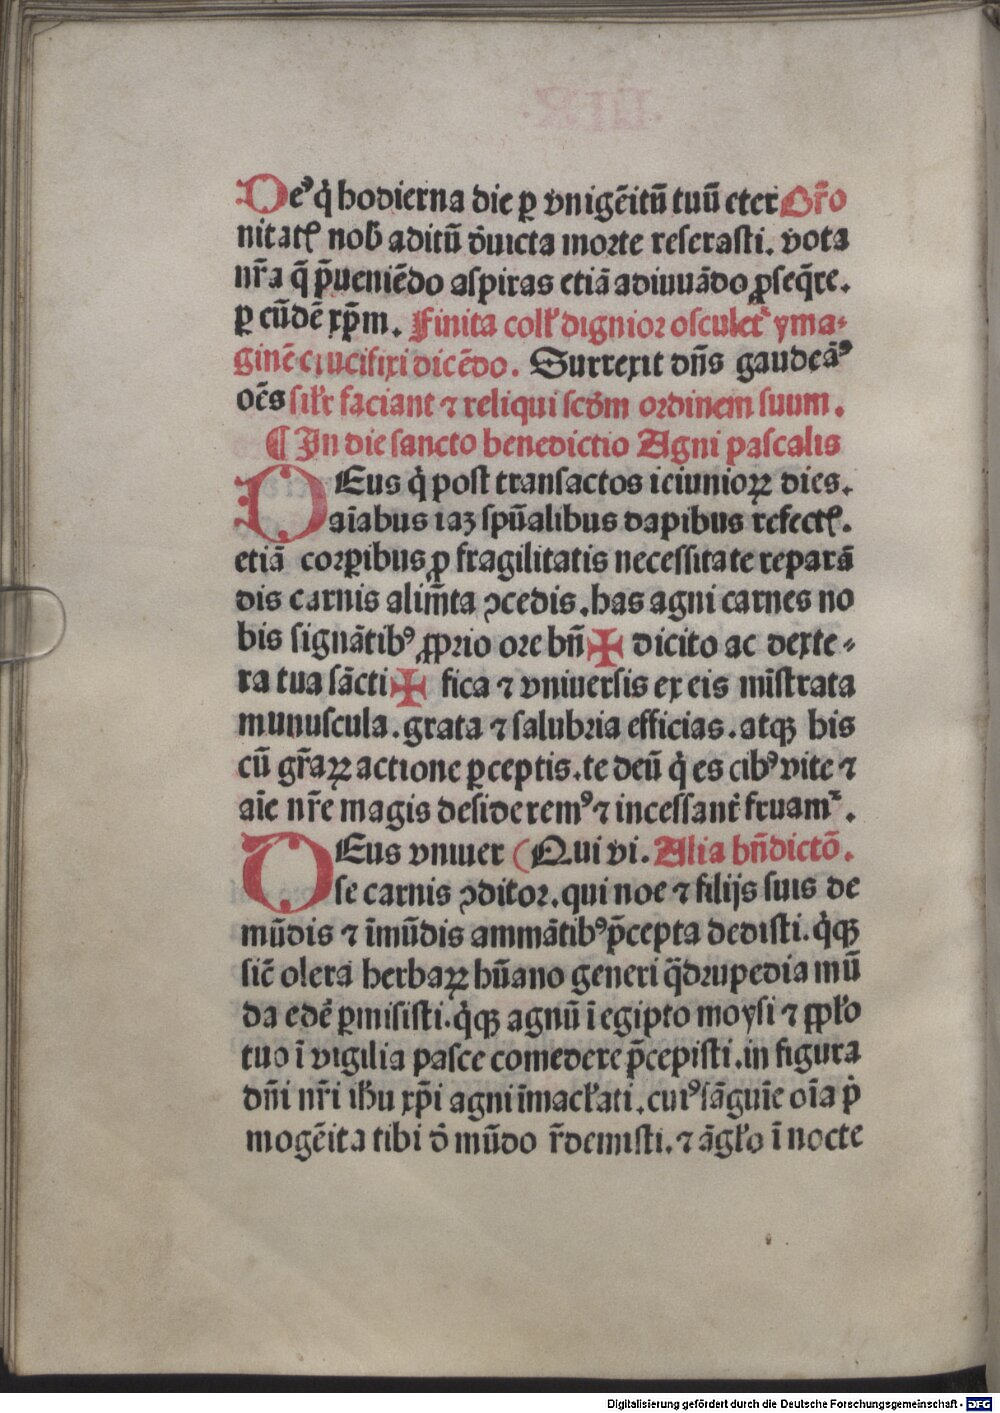 Deꝰ q̇ hodierna die ꝑ vnigēitū tuū eter Or̄o
nitatꝭ nob̄ aditū d̄uicta morte reserasti. vota
nr̄a q̄ p̄ueniēdo aspiras etiā adiuuādo ꝓseq̄re.
ꝑ eūdē xp̄m. Finita coll' dignior osculet᷑ yma-
ginē crucifixi dicēdo. Surrexit dn̄s gaudeāꝰ
oēs sil'r faciant ⁊ reliqui scd̄m ordinem suum.
¶ In die sancto benedictio Agni pascalis
DEus q̇ post transactos ieiunioꝝ dies.
aīabus iaꝫ spūalibus dapibus refectꝭ.
etiā corꝑibus ꝓ fragilitatis necessitate reparā
dis carnis alim̄ta ꝯcedis. has agni carnes no
bis signātibꝰ ꝓprio ore bn̄ ✠ dicito ac dexte-
ra tua sācti ✠ fica ⁊ vniuersis ex eis mīstrata
munuscula. grata ⁊ salubria efficias. atqꝫ his
cū gr̄aꝝ actione ꝑceptis. te deū q̇ es cibꝰ vite ⁊
aīe nr̄e magis desideremꝰ ⁊ incessant̉ fruam᷑.
DEus vniuer (Qui vi. Alia bn̄dictō.
se carnis ꝯditor. qui noe ⁊ filijs suis de
mūdis ⁊ īmūdis ammātibꝰ p̄cepta dedisti. q̇qꝫ
sic̄ olera herbaꝝ hūano generi q̄drupedia mū
da edē ꝑmisisti. q̇qꝫ agnū ī egipto moysi ⁊ ppl'o
tuo ī vigilia pasce comedere p̄cepisti. in figura
dn̄i nr̄i ih̄u xp̄i agni īmacl'ati. cuiꝰ sāguīe oīa ṗ
mogēita tibi d̄ mūdo r̄demisti. ⁊ āgl'o ī nocte
Digitalisierung gefördert durch die Deutsche Forschungsgemeinschaft - DFG